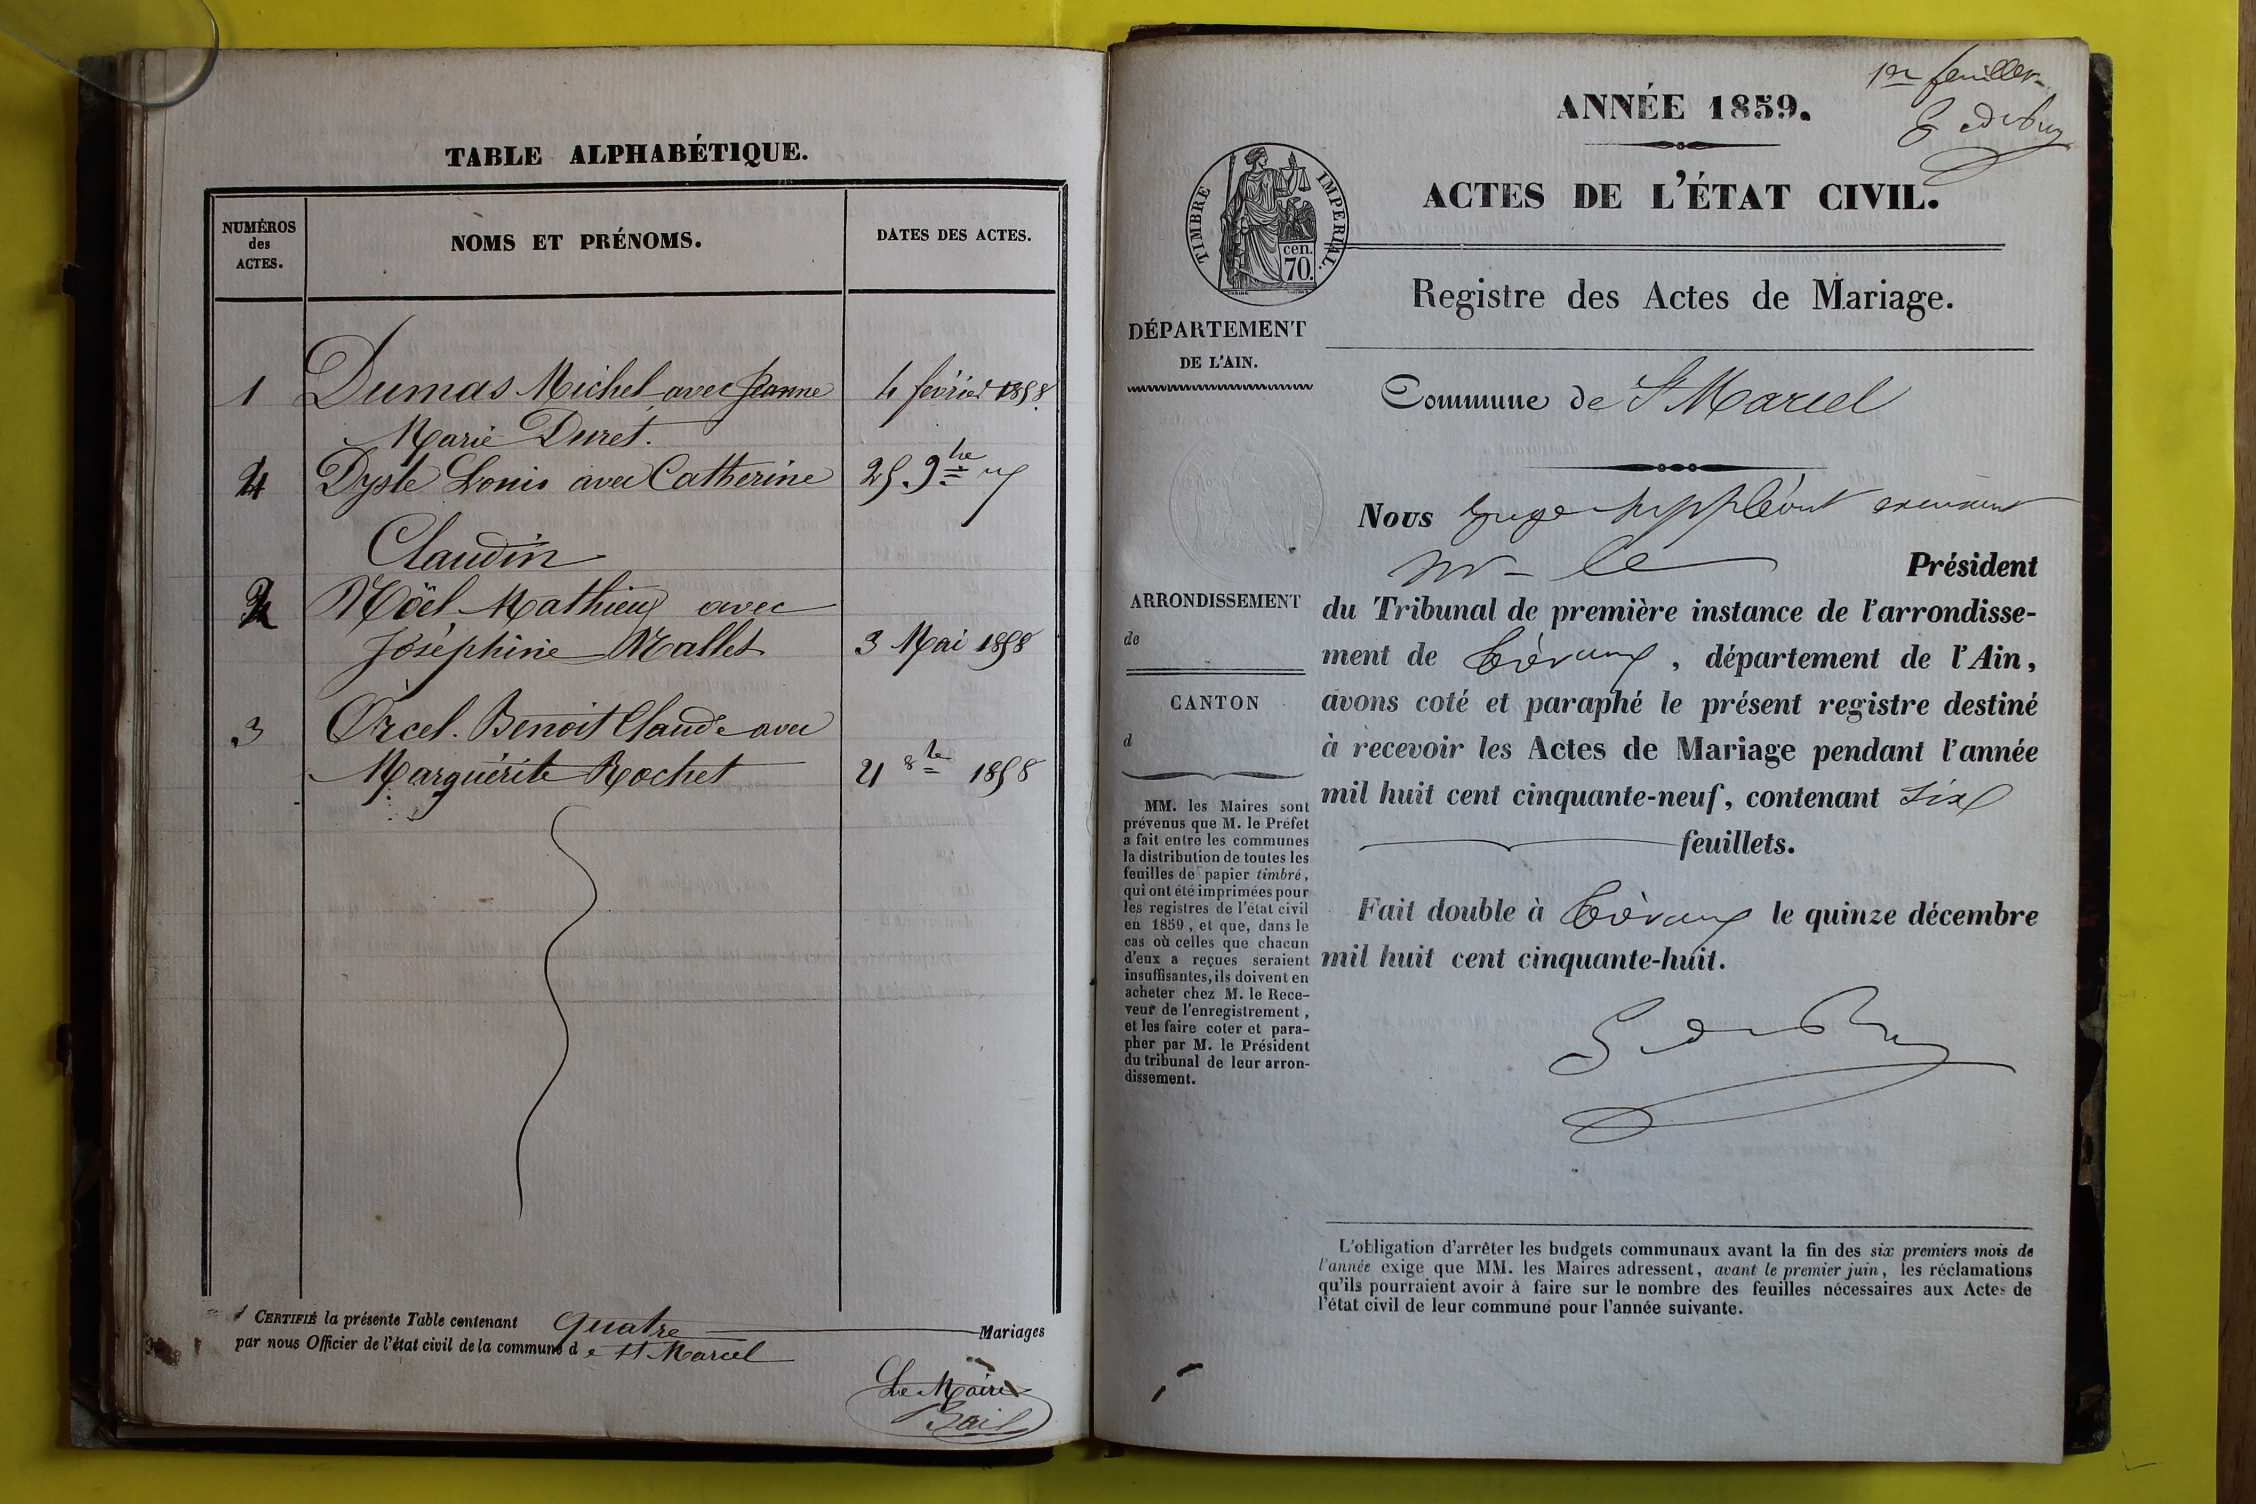 TABLE ALPHABÉTIQUE.
NUMÉROS
des
ACTES.
NOMS ET PRÉNOMS.
DATES DES ACTES.
1 Dumas Michel avec Jeanne 4 février 1858.
Marie Duret.
4 Dyste Louis avec Catherine 25 9bre
Claudin
2 Noël Mathieu avec
Joséphine Mallet 3 Mai 1858
3 Orcel Benoit Claude avec
Marguérite Rochet 21 8bre 1858
CERTIFIÉ la présente Table contenant quatre Mariages
par nous Officier de l'état civil de la commune de St Marcel
Le Maire
Bail
1er feuillet
ANNÉE 1859.
ACTES DE L'ÉTAT CIVIL.
TIMBRE IMPERIAL.
cen.
70.
Registre des Actes de Mariage.
DÉPARTEMENT
DE L'AIN.
Commune de St Marcel
Nous Juge suppléant exerçant
Président
ARRONDISSEMENT
de
du Tribunal de première instance de l'arrondisse-
ment de Trévoux, département de l'Ain,
avons coté et paraphé le présent registre destiné
à recevoir les Actes de Mariage pendant l'année
mil huit cent cinquante-neuf, contenant six
feuillets.
CANTON
d
MM. les Maires sont
prévenus que M. le Préfet
a fait entre les communes
la distribution de toutes les
feuilles de papier timbré,
qui ont été imprimées pour
les registres de l'état civil
en 1859, et que, dans le
cas où celles que chacun
d'eux a reçues seraient
insuffisantes, ils doivent en
acheter chez M. le Rece-
veur de l'enregistrement,
et les faire coter et para-
pher par M. le Président
du tribunal de leur arron-
dissement.
Fait double à Trévoux le quinze décembre
mil huit cent cinquante-huit.
L'obligation d'arrêter les budgets communaux avant la fin des six premiers mois de
l'année exige que MM. les Maires adressent, avant le premier juin, les réclamations
qu'ils pourraient avoir à faire sur le nombre des feuilles nécessaires aux Actes de
l'état civil de leur commune pour l'année suivante.